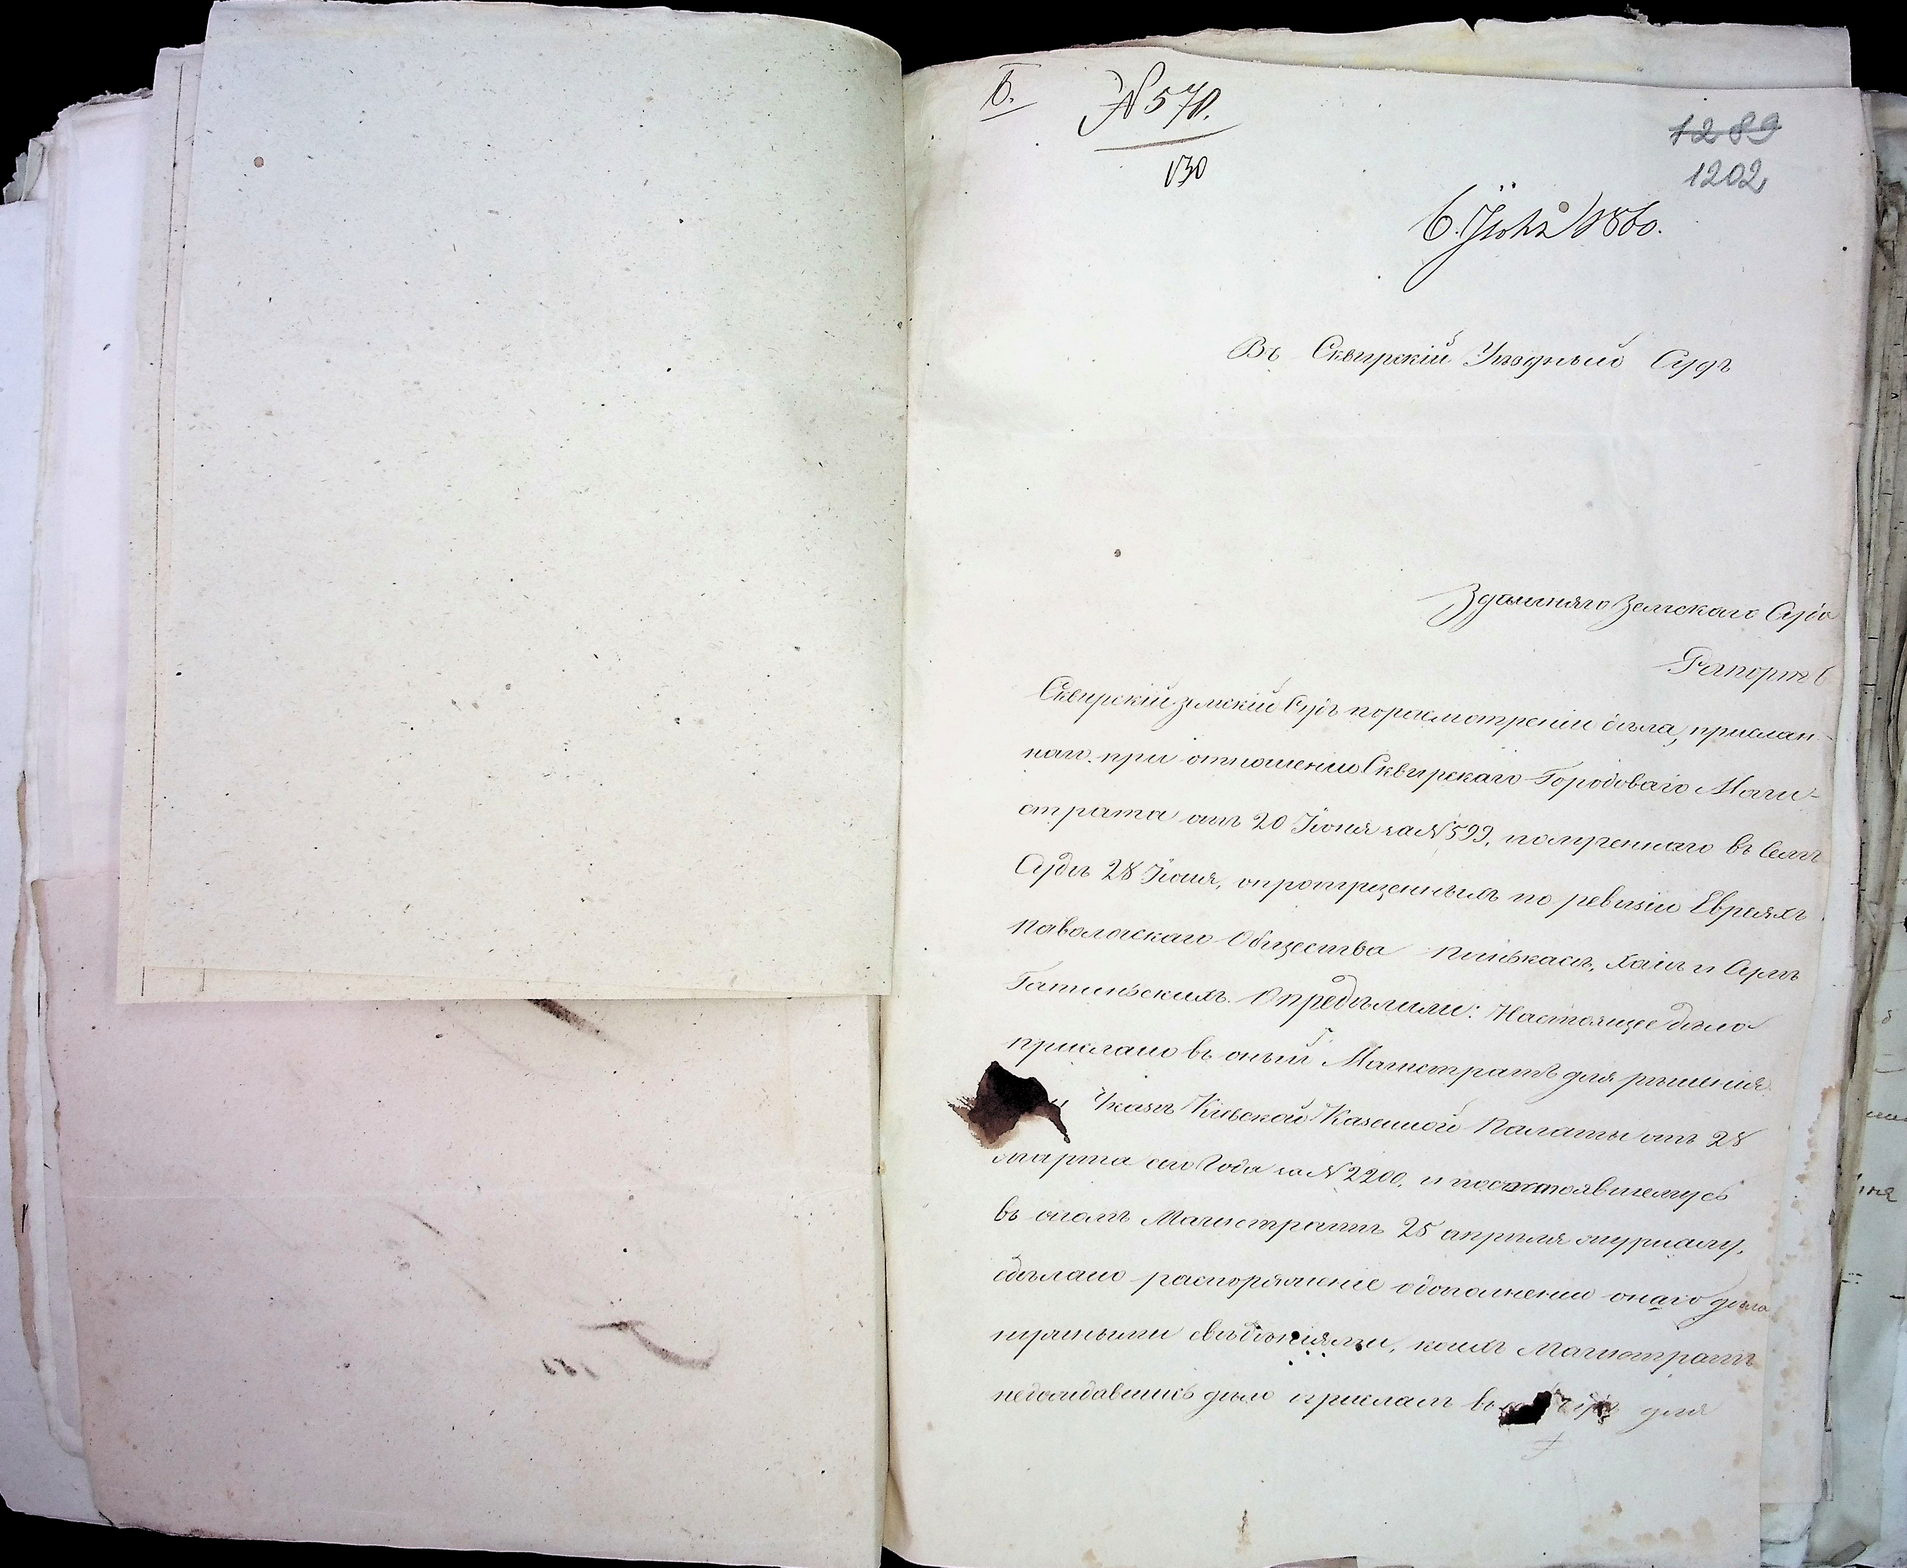 Б.
№ 570.
130
1289
1202
6. Іюля 1860.
Въ Сквирскій Уѣздный Судъ
Здѣшняго Земскаго Суда
Рапортъ
Сквирскій земскій Судъ поразсмотреніи дѣла, прислан-
наго при отношеніи Сквирскаго Городоваго Маги-
страта отъ 20 Іюня за № 599, полученнаго въ Семъ
Судѣ 28 Іюня, опропущенныхъ по ревизіи Евреяхъ
паволочскаго Общества Пинькасѣ, Хаимѣ и Сурѣ
Опредѣлили: Настоящее дѣло
прислано въ оный Магистратъ для рѣшенія
Указѣ Кіевской Казенной Палаты отъ 28
марта сего Года за № 2200, и посостоявшемусь
въ ономъ Магистратѣ 25 апрѣля журналу,
сдѣлано распоряженіе одополненіи онаго дѣла
нужными свѣденіями, коихъ Магистратъ
недождавшись дѣло прислалъ въ Судъ для